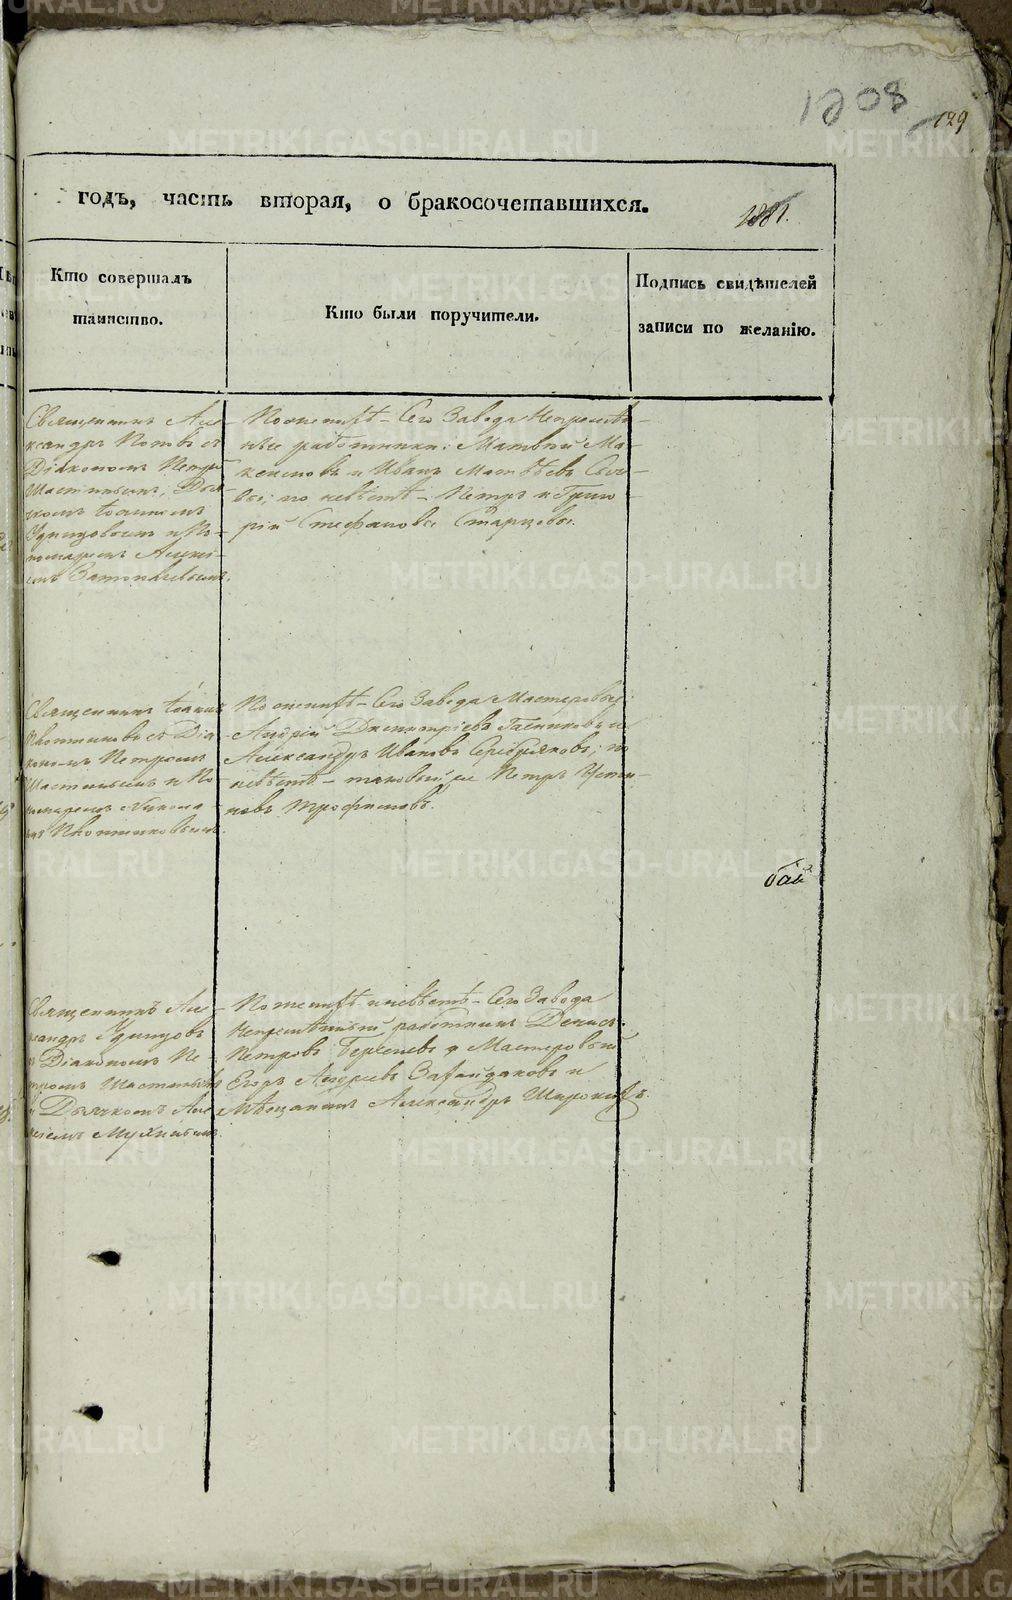 1208
129
годъ, часть вторая, о бракосочетавшихся.
1881.
Кто совершалъ
таинство.
Кто были поручители.
Подпись свидѣтелей
записи по желанію.
Священникъ Але-
ксандръ Поповъ съ
Діакономъ Петромъ
Дья-
комъ Іоанномъ
Удинцовымъ и По-
номаремъ Алексѣ-
емъ
По женихѣ – Сего Завода Непремѣн-
ные работники: Матвѣй Ма-
ксимовъ и Иванъ Матвѣевъ
по невѣстѣ – Петръ и Григо-
рій Стефановы Старцовы.
Священникъ Іоаннъ
съ Діа-
кономъ Петромъ
и По-
номаремъ Никола-
емъ
По женихѣ – Сего Завода Мастеровые
Андрей Димитріевъ и
Александръ Ивановъ Серебряковъ; по
невѣстѣ – таковый же Петръ
Трофимовъ.
Священникъ Але-
ксандръ Удинцовъ
съ Діакономъ Пе-
тромъ
и Дьячкомъ Але-
ксѣемъ Мухинымъ.
По женихѣ и невѣстѣ – Сего Завода
Непремѣнный работникъ Денисъ
Петровъ и Мастеровый
Егоръ Андреевъ и
Мѣщанинъ Александръ
METRIKI.GASO-URAL.RU